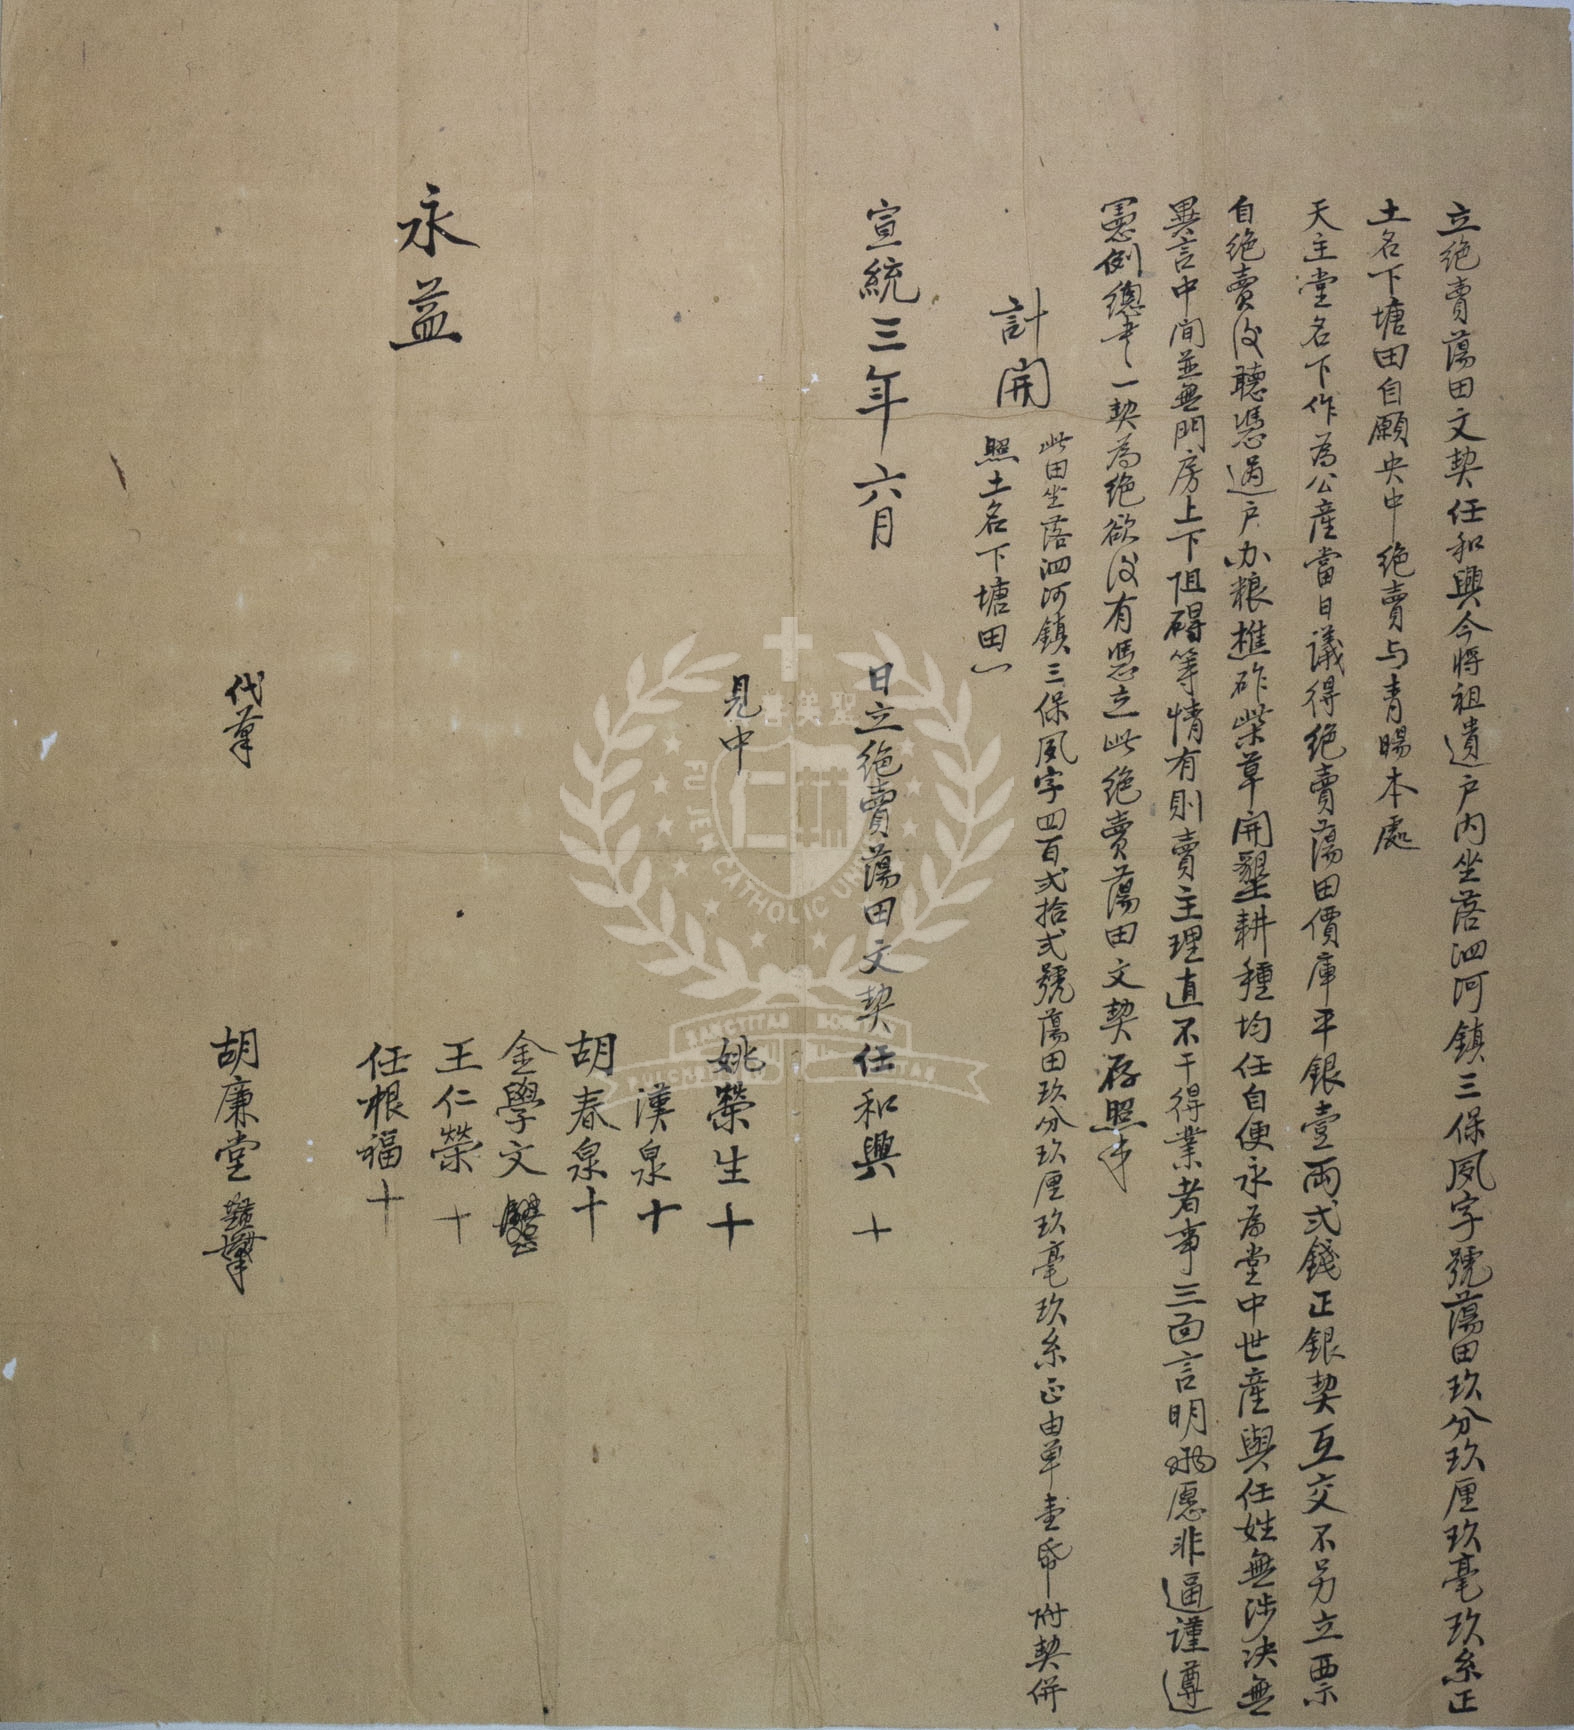 立絕賣蕩田文契任和興今將祖遺戶內坐落泗河鎮三保夙字號蕩田玖分玖厘玖毫玖糸正
土名下塘田自願央中絕賣与青暘本處
天主堂名下作為公產當日議得絕賣蕩田價庫平銀壹兩弍錢正銀契互交不另立票
自絕賣後聽憑過戶办粮樵砟柴草開墾耕種均任自便永為堂中世產與任姓無涉決無
異言中间並無門房上下阻碍等情有則賣主理直不干得業者事三面言明兩愿非逼謹遵
憲例總書一契為絕欲後有憑立此絕賣蕩田文契存照
計開
此田坐落泗河鎮三保夙字四百弍拾弍號蕩田玖分玖厘玖毫玖糸正由单壹帋附契併
照土名下塘田
宣統三年六月 日立絕賣蕩田文契任和興 十
見中 姚榮生 十
漢泉 十
胡春泉 十
金學文
王仁榮 十
任根福 十
永益
代筆 胡廉堂
FU JEN CATHOLIC UNIVERSITY